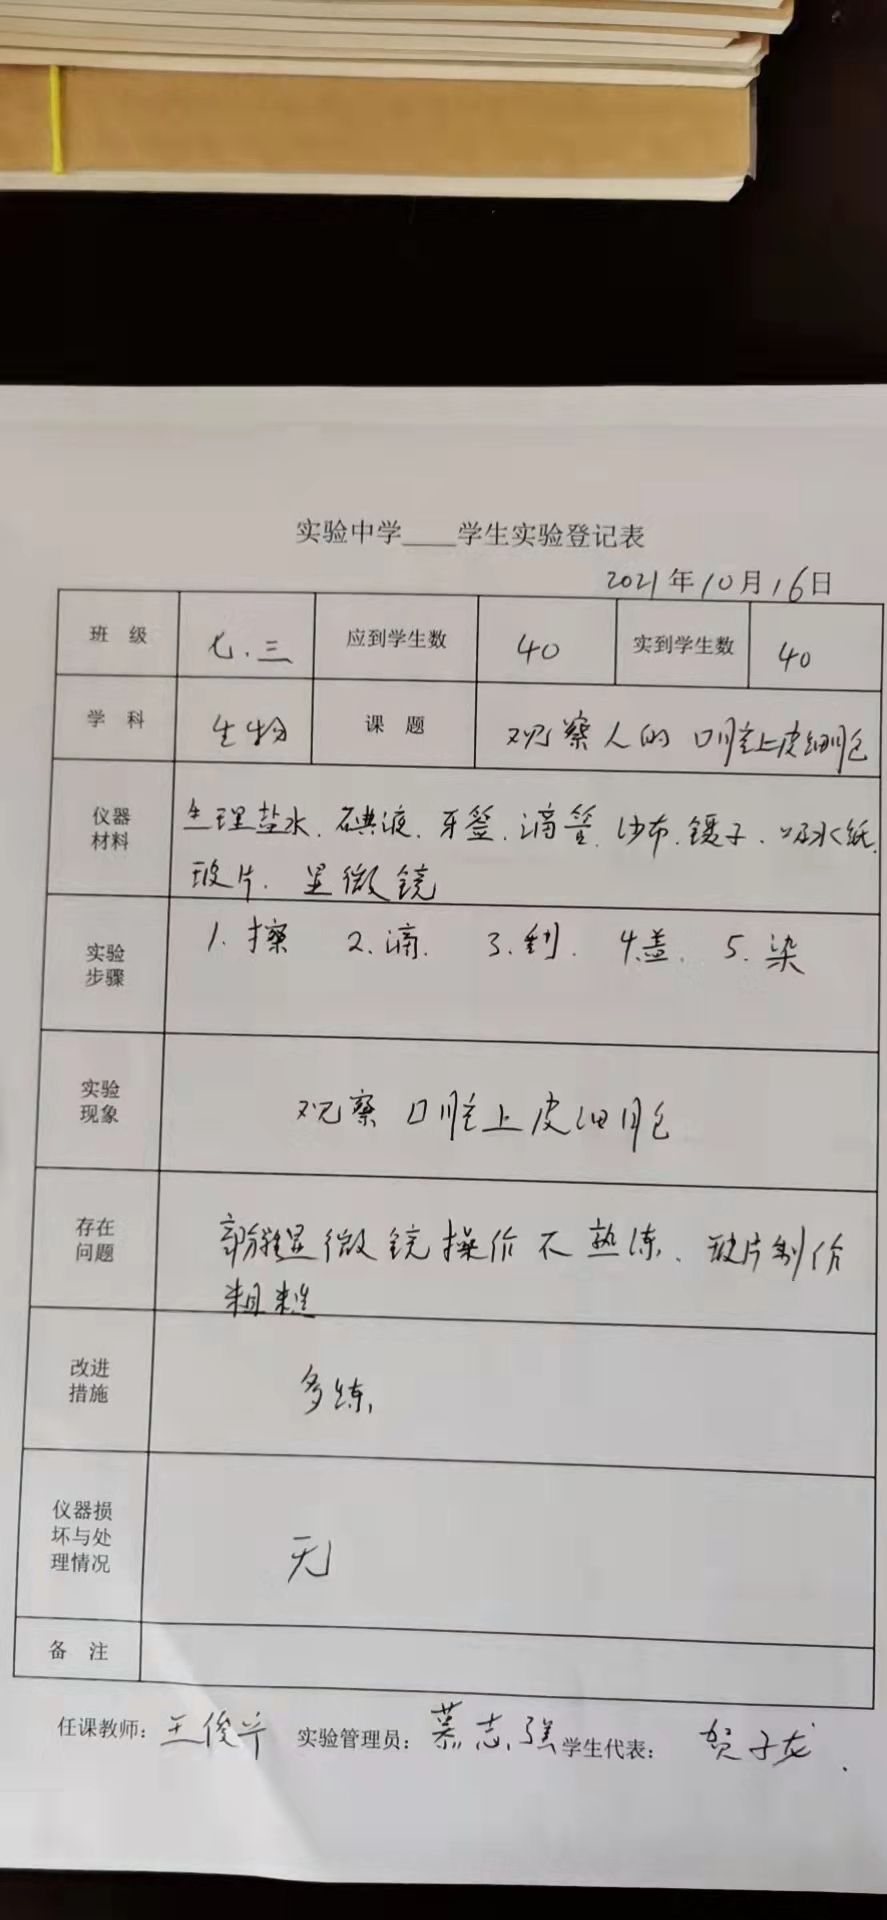 实验中学____学生实验登记表
2021年10月16日
班 级 七.三 应到学生数 40 实到学生数 40
学 科 生物 课 题 观察人的口腔上皮细胞
仪器
材料
生理盐水.碘液.牙签.滴管.纱布.镊子.吸水纸.
玻片. 显微镜
实验
步骤
1.擦 2.滴. 3.刮. 4.盖. 5.染
实验
现象
观察口腔上皮细胞
存在
问题
显微镜操作不熟练、玻片制作
粗糙
改进
措施
多练,
仪器损
坏与处
理情况
无
备 注
任课教师:王俊 实验管理员:慕志强 学生代表: 贺子龙.